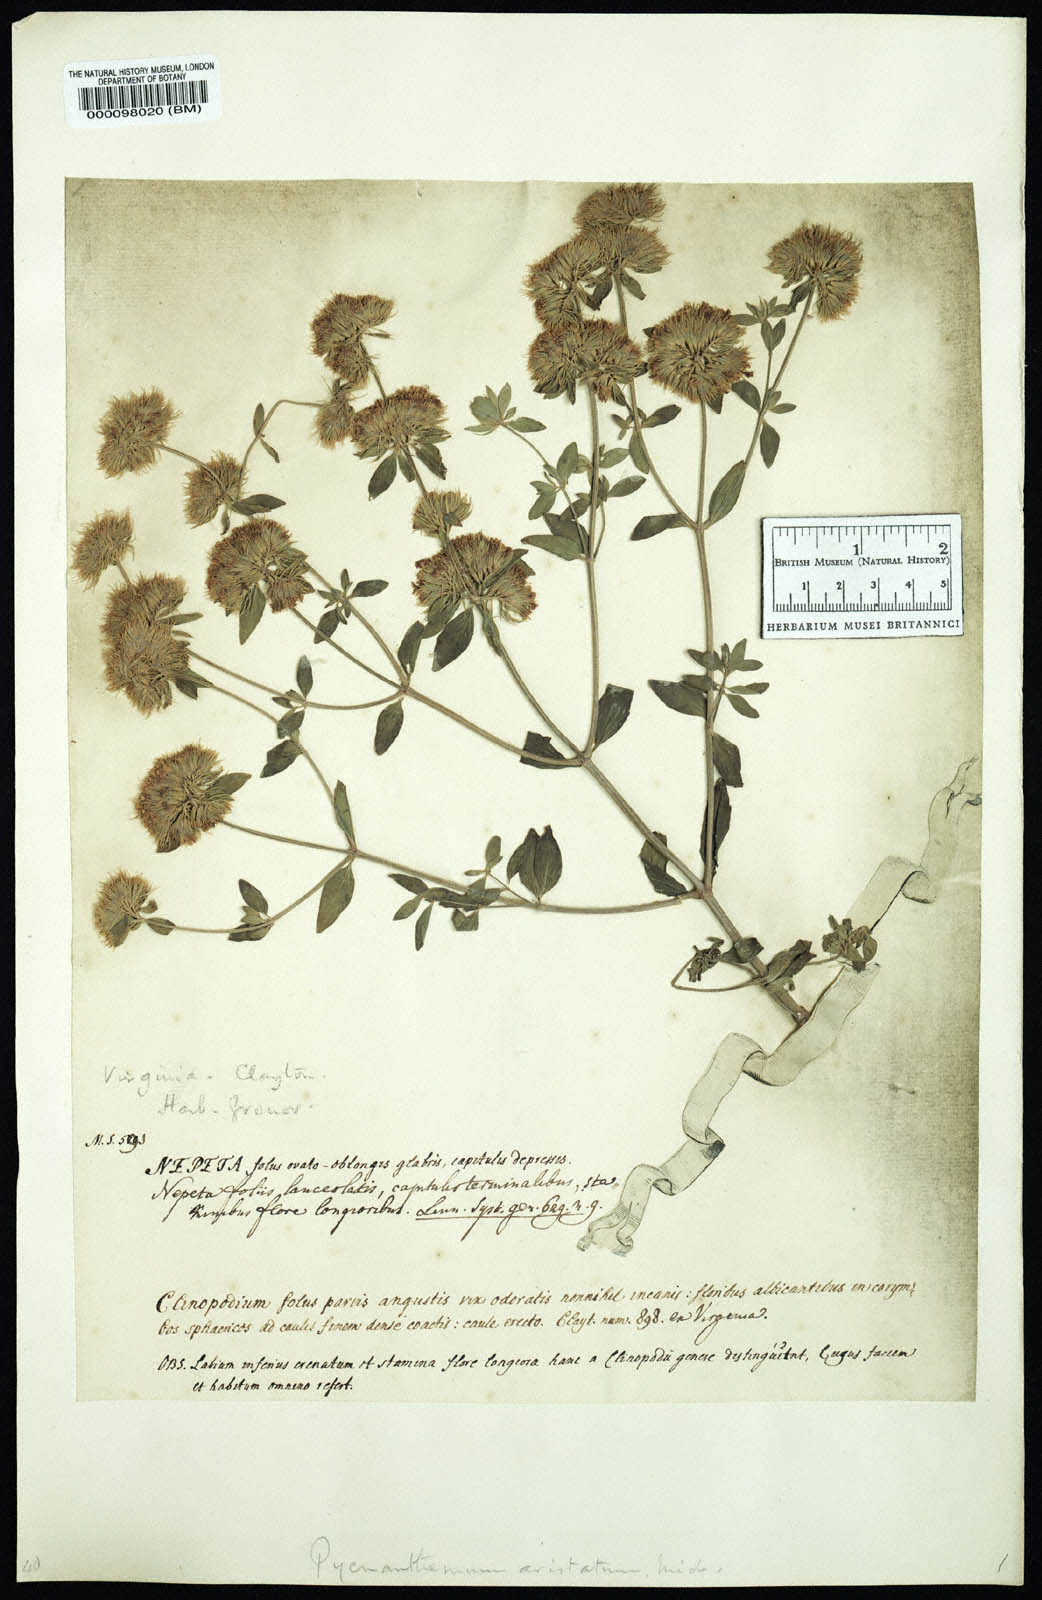 THE NATURAL HISTORY MUSEUM, LONDON
DEPARTMENT OF BOTANY
000098020 (BM)
1 2
BRITISH MUSEUM (NATURAL HISTORY)
1 2 3 4 5
HERBARIUM MUSEI BRITANNICI
Virginia. Clayton.
Herb. Gronov.
M.S.
NEPETA foliis ovato-oblongis glabris, capitulis depressis.
Nepeta foliis lanceolatis, capitulis terminalibus, sta-
minibus flore longioribus. Linn. Syst. gen. 629. n. 9.
Clinopodium foliis parvis angustis vix odoratis nonnihil incanis: floribus albicantibus in corym-
bos sphaericos ad caulis finem dense coactis: caule erecto. Clayt. num. 898. ex Virginia.
OBS. Labium inferius crenatum et stamina flore longiora hanc a Clinopodii genere distinguunt, cujus faciem
et habitum omnino refert.
Pycnanthemum aristatum, Michx.
40
1